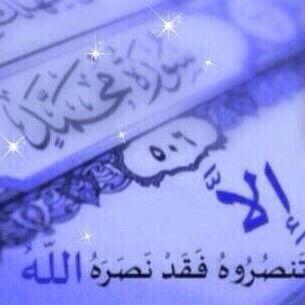 سورة محمد
٥٠٦
إلا
تنصروه فقد نصره الله